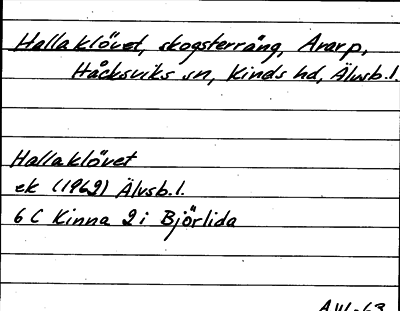 Hallaklövet, skogsterräng, Ararp,
Håcksviks sn, Kinds hd, Älvsb.l.
Hallaklövet
ek (1962) Älvsb.l.
6 C Kinna 2i Björlida